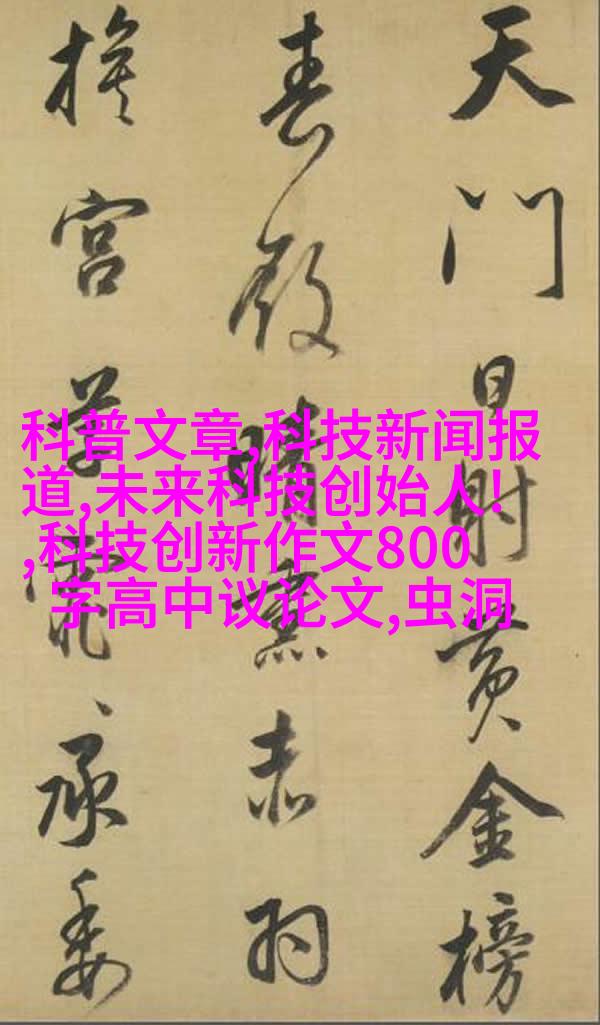 天門日射黃金榜
春殿晴熏赤羽
旗宮草霏々承委
科普文章,科技新闻报
道,未来科技创始人!
,科技创新作文800
字高中议论文,虫洞